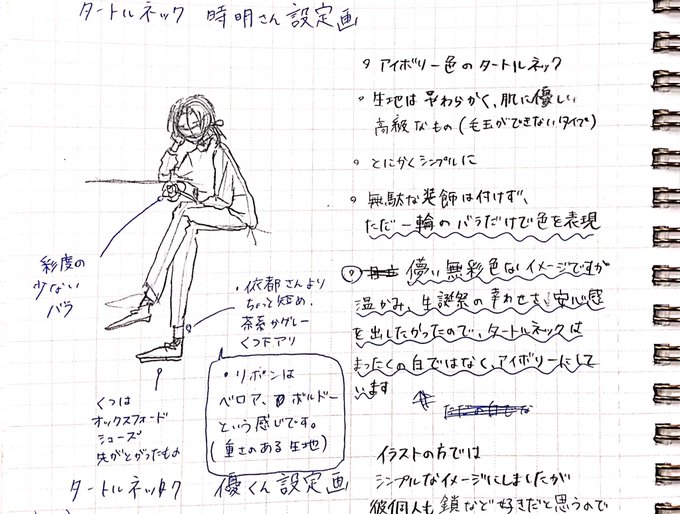 タートルネック 時明さん設定画
・アイボリー色のタートルネック
・生地はやわらかく、肌に優しい
高級なもの(毛玉ができないタイプ)
・とにかくシンプルに
・無駄な装飾は付けず、
ただ一輪のバラだけで色を表現
儚い無彩色なイメージですが
温かみ、生誕祭の幸わせさ、安心感
を出したかったので、タートルネックは
まったくの白ではなく、アイボリーにして
います
彩度の
少ない
バラ
・依都さんより
ちょっと短め、
茶系かグレー
くつ下アリ
・リボンは
ベロア、ボルドー
という感じです。
(重さのある生地)
くつは
オックスフォード
シューズ
先がとがったもの
イラストの方では
シンプルなイメージにしましたが
彼個人も鎖など好きだと思うので
タートルネック 優くん設定画